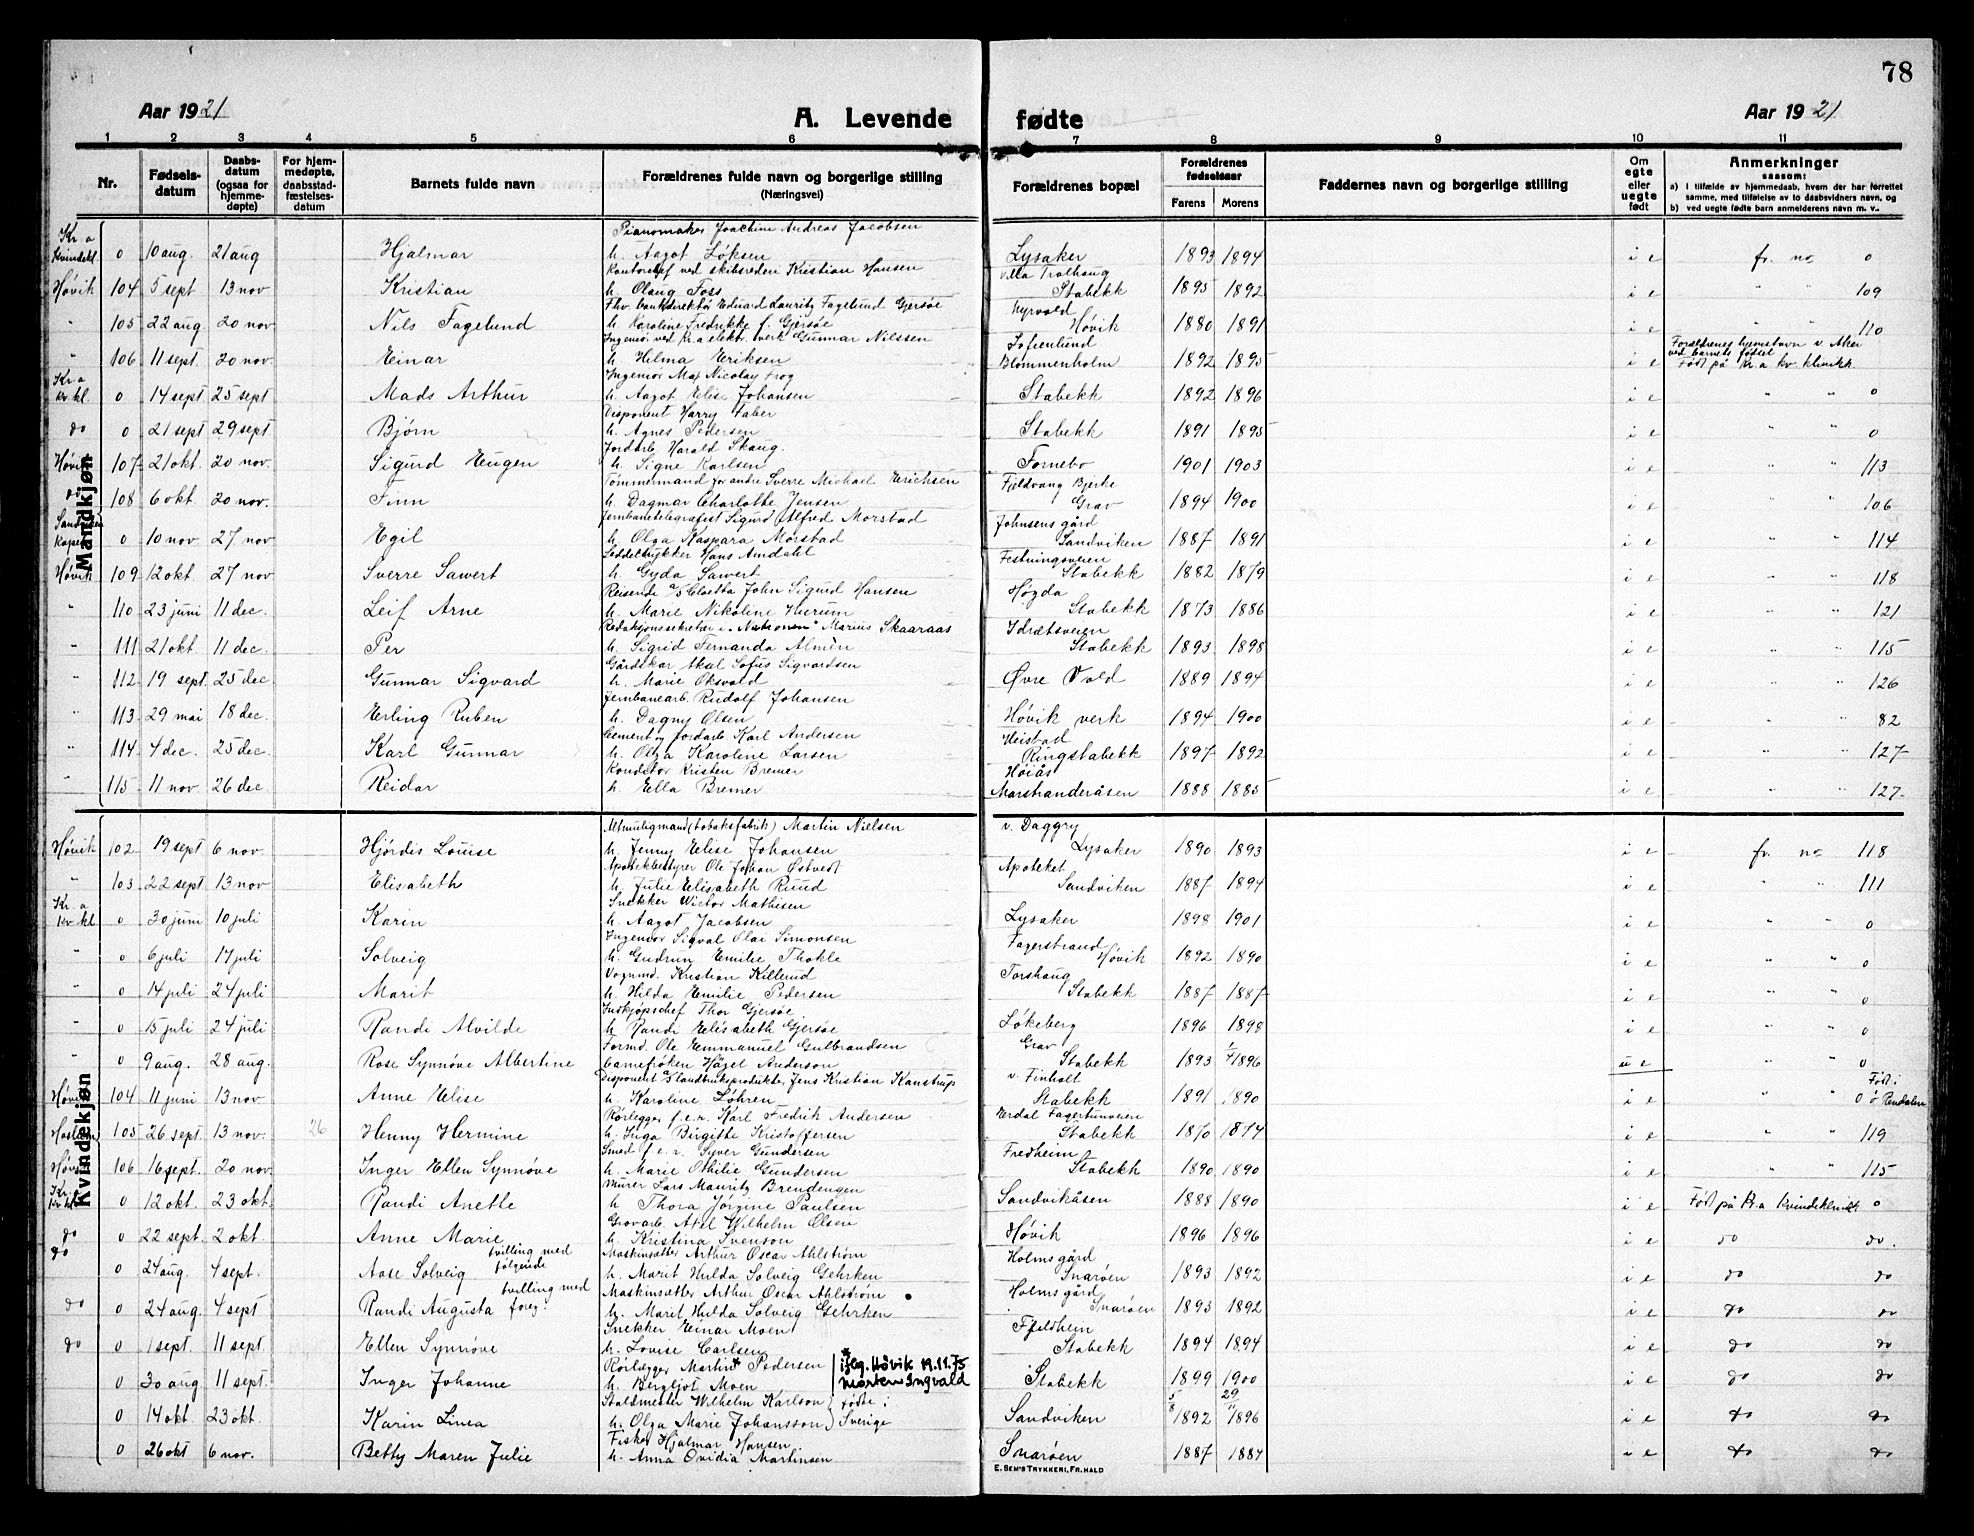 78
Aar 1921 A. Levende fødte Aar 1921
1 2 3 4 5 6 7 8 9 10 11
Nr. Fødsels-datum Daabs-datum (ogsaa for hjemme-døpte) For hjem-medøpte, daabsstad-fæstelses-datum Barnets fulde navn Forældrenes fulde navn og borgerlige stilling (Næringsvei) Forældrenes bopæl Forældrenes fødselsaar Farens Morens Faddernes navn og borgerlige stilling Om egte eller uegte født Anmerkninger saasom:
a) I tilfælde av hjemmedaab, hvem der har forrettet samme, med tilføielse av to daabsvidners navn, og
b) ved uegte fødte barn anmelderens navn m. v.
Mandkjøn
Pianomaker Joachim Andreas Jacobsen
Kr.a Kvindekl. 0 10 aug. 21 aug Hjalmar h. Aagot Løksen Lysaker 1893 1894 i e fr. no 0
Kontorchef ved skibsrederi Kristian Hansen Villa Trolhaug
Høvik 104 5 sept 13 nov Kristian h. Olaug Foss Stabekk 1895 1892 i e " " 109
Fhv. bankdirektør Eduard Lauritz Fagelund Gjersøe Nyvold
" 105 22 aug 20 nov Nils Fagelund h. Karoline Fredrikke f. Gjersøe Høvik 1880 1891 i e " " 110
Ingeniør ved Kr.a elektr. verk Gunnar Nilssen Sofienlund Forældrenes hjemstavn v. Aker ved barnets fødsel
" 106 11 sept. 20 nov. Einar h. Hilma Eriksen Blommenholm 1892 1895 i e Født på Kr.a kv. klinikk
Ingeniør Max Nicolay Frog
Kr.a kv kl. 0 14 sept 25 sept Mads Arthur h. Aagot Elise Johansen Stabekk 1892 1896 i e " " 0
Disponent Harry Faber
do 0 21 sept 29 sept Bjørn h. Agnes Pedersen Stabekk 1891 1895 i e " " 0
Jordarb. Harald Skaug.
Høvik 107 21 okt. 20 nov. Sigurd Eugen h. Signe Karlsen Fornebo 1901 1903 i e " " 113
Tømmermand for andre Sverre Michael Erichsen Fjeldvang Bjerke
do 108 6 okt 20 nov. Finn h. Dagmar Charlotte Jensen Grav 1894 1900 i e " " 106
Jernbanetelegrafist Sigurd Alfred Morstad Johnsens gård
Sandviken Kapel 0 10 nov. 27 nov Egil h. Olga Kaspara Morstad Sandviken 1887 1891 i e " " 114
Seddeltrykker Hans Amdahl Festningsveien
Høvik 109 12 okt. 27 nov Sverre Sawert h. Gyda Sawert Stabekk 1882 1879 i e " " 118
Reisende a/s Cloetta John Sigurd Hansen Høgda
" 110 23 juni 11 dec. Leif Arne h. Marie Nikoline Therum Stabekk 1873 1886 i e " " 121
Redaksjonssekretær i „Nationen" Marius Skaaraas Idrætsveien
" 111 21 okt. 11 dec. Per h. Sigrid Fernanda Almèn Stabekk 1893 1898 i e " " 115
Gårdskar Aksel Sofus Sigvardsen
" 112 19 sept. 25 dec Gunnar Sigvard h. Marie Oksvold Øvre Vold 1889 1894 i e " " 126
Jernbanearb. Rudolf Johansen
" 113 29 mai 18 dec. Erling Ruben h. Dagny Olsen Høvik verk 1894 1900 i e " " 82
Cement og jordarb Karl Andersen Heistad
" 114 4 dec. 25 dec. Karl Gunnar h. Olga Karoline Larsen Ringstabekk 1897 1892 i e " " 127
Konditor Kristen Bremer Høiås
" 115 11 nov. 26 dec. Reidar h. Ella Bremer Marstranderåsen 1888 1885 i e " " 127
Kvindekjøn
Altmuligmand (tobaksfabrik) Martin Nielsen v. Daggry
Høvik 102 19 sept 6 nov. Hjørdis Louise h. Jenny Elise Johansen Lysaker 1890 1893 i e fr. no 118
Apotekbestyrer Ole Johan Østvedt Apoteket
" 103 22 sept 13 nov Elisabeth h. Julie Elisabeth Ruud Sandviken 1887 1894 i e " " 111
Snekker Victor Mathisen
Kr. a kv kl 0 30 juni 10 juli Karin h. Aagot Jacobsen Lysaker 1898 1901 i e " " 0
Ingeniør Sigval Olai Simonsen Fagerstrand
" 0 6 juli 17 juli Solveig h. Gudrun Emilie Thokle Høvik 1892 1890 i e " " 0
Vognmd. Kristian Killerud Torshaug
" 0 14 juli 24 juli Marit h. Hilda Emilie Pedersen Stabekk 1887 1887 i e " " 0
Indkjøpschef Thor Gjersøe
" 0 15 juli 24 juli Randi Alvilde h. Randi Elisabeth Gjersøe Løkeberg 1896 1898 i e " " 0
Formd. Ole Emmanuel Gulbrandsen Grav
" 0 9 aug. 28 aug. Rose Synnøve Albertine Camefrøken Hågel Anderson Stabekk 1893 1/7 1896 u e " " 0
Disponent a/s landbruksprodukter, Jens Kristian Kanstrup v. Finholt Født i
Høvik 104 11 juni 13 nov Anne Elise h. Karoline Løhren Stabekk 1891 1890 i e " " 0 ø Rendalen
Rørlegger f.e.r. Karl Fredrik Andersen Erdal Fagertunveien
Haslum 105 26 sept. 13 nov. 26 Henny Hermine h. Inga Birgitte Kristoffersen Stabekk 1870 1874 i e " " 119
Smed f.e.r. Syver Gundersen Fredheim
Høvik 106 16 sept. 20 nov. Inger Ellen Synnøve h. Marie Othilie Gundersen Stabekk 1890 1890 i e " " 115
Murer Lars Mauritz Brendengen
Kr. a kv kl 0 12 okt. 23 okt. Randi Anette h Thora Jørgine Paulsen Sandvikåsen 1888 1890 i e Født på Kr.a kvindeklinikk 0
Grovarb. Axel Wilhelm Olsen
do 0 22 sept 2 okt. Anne Marie h. Kristina Svenson Høvik 1896 1896 i e do do.
Maskinsætter Arthur Oscar Ahlstrøm Holms gård
do 0 24 aug. 4 sept. Aase Solveig tvilling med følgende h. Marit Hulda Solveig Gehrken Snarøen 1893 1892 i e do do
Maskinsætter Arthur Oscar Ahlstrøm Holms gård
do 0 24 aug. 4 sept Randi Augusta tvilling med foreg. h. Marit Hulda Solveig Gehrken Snarøen 1893 1892 i e do do
Snekker Einar Moen Fjeldheim
do 0 1 sept. 11 sept. Ellen Synnøve h. Lovise Carlsen Stabekk 1894 1894 i e do do
Rørlegger Martin* Pedersen * iflg. Høvik 19.11.75
0 30 aug. 11 sept. Inger Johanne h. Bergljot Moen Morten Ingvald Stabekk 1899 1900 i e do do
Staldmester Wilhelm Karlson } fødte i 5/8 29/11
0 14 okt 23 okt. Karin Linea h. Olga Marie Johansson } Sverige Sandviken 1892 1896 i e do do
Fisker Hjalmar Hansen
0 26 okt 6 nov. Betty Maren Julie h. Anna Ovidia Martinsen Snarøen 1887 1884 i e do do
E. SEM'S TRYKKERI, FR.HALD